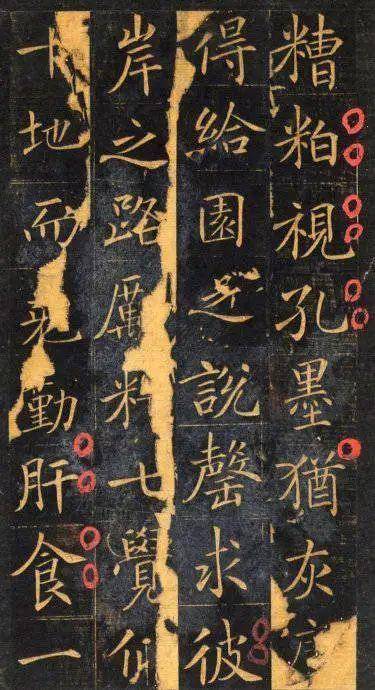 糟粕視孔墨猶灰
得給園之說罄求彼
岸之路厲料七覺仰
十地而克勤肝食一